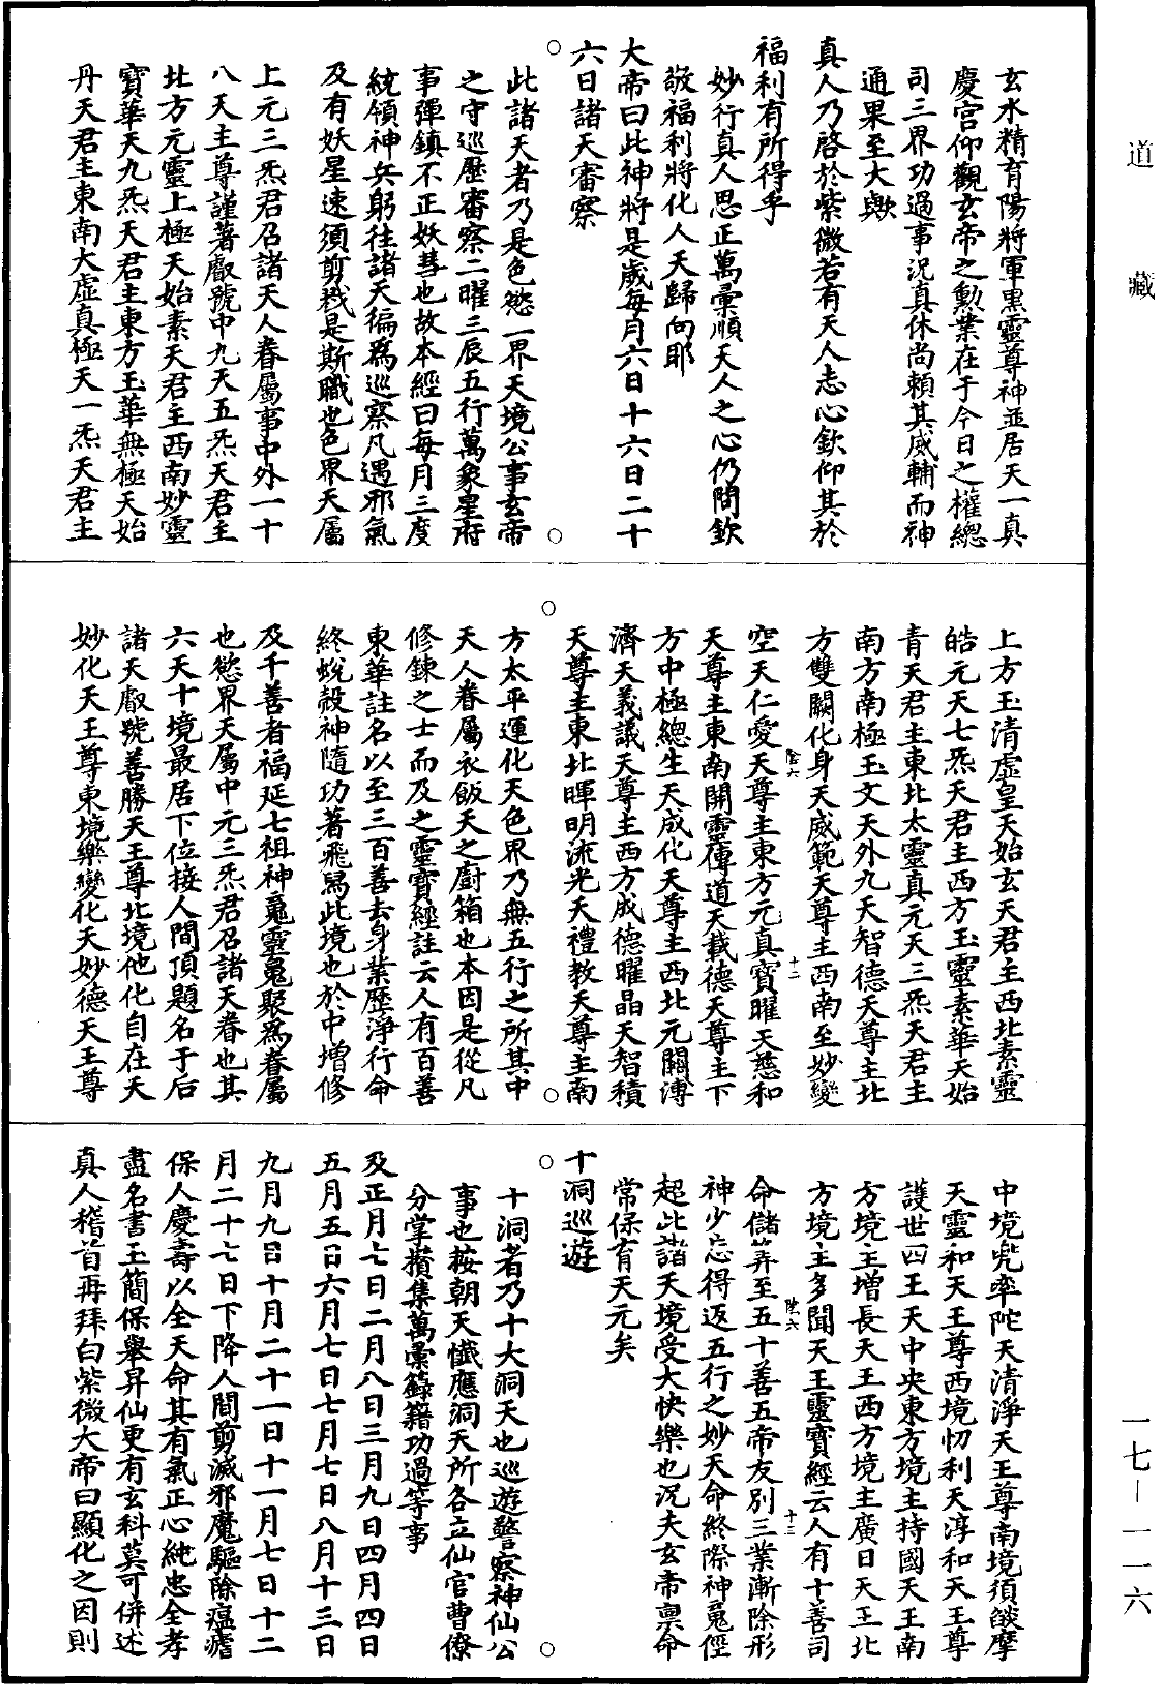 道藏
玄水精育陽將軍黑靈尊神並居天一真
慶宮仰觀玄帝之勳業在于今日之權總
司三界功過事況真休尚賴其威輔而神
通果至大歟
真人乃啓於紫微若有天人志心欽仰其於
福利有所得乎
妙行真人思正萬彙順天人之心仍問欽
敬福利將化人天歸向耶
大帝曰此神將是歲每月六日十六日二十
六日諸天審察
此諸天者乃是色慾一界天境公事玄帝
之守巡歷審察二曜三辰五行萬象星府
事彈鎮不正妖彗也故本經曰每月三度
統領神兵躬往諸天徧為巡察凡遇邪氣
及有妖星速須剪戮是斯職也色界天屬
上元三炁君召諸天人眷屬事中外一十
八天主尊謹著叡號中九天五炁天君主
北方元靈上極天始素天君主西南妙靈
寶華天九炁天君主東方玉華無極天始
丹天君主東南大虛真極天一炁天君主
上方玉清虛皇天始玄天君主西北素靈
皓元天七炁天君主西方玉靈素華天始
青天君主東北太靈真元天三炁天君主
南方南極玉文天外九天智德天尊主北
方雙闕化身天威範天尊主西南至妙變
空天仁愛天尊主東方元真寶曜天慈和
天尊主東南開靈傳道天載德天尊主下
方中極總生天成化天尊主西北元闢溥
濟天義議天尊主西方成德曜晶天智積
天尊主東北暉明流光天禮教天尊主南
方太平運化天色界乃無五行之所其中
天人眷屬衣飯天之廚箱也本因是從凡
修鍊之士而及之靈寶經註云人有百善
東華註名以至三百善去身業歷淨行命
終蛻殼神隨功著飛舄此境也於中增修
及千善者福延七祖神䰟靈䰟聚為眷屬
也慾界天屬中元三炁君召諸天眷也其
六天十境最居下位接人間頂題名于后
諸天叡號善勝天王尊北境他化自在天
妙化天王尊東境樂變化天妙德天王尊
中境兜率陀天清淨天王尊南境須燄摩
天靈和天王尊西境忉利天淳和天王尊
護世四王天中央東方境主持國天王南
方境主增長天王西方境主廣目天王北
方境主多聞天王靈寶經云人有十善司
命儲筭至五十善五帝友別三業漸除形
神少忘得返五行之妙天命終際神䰟徑
超此諸天境受大快樂也況夫玄帝稟命
常保育天元矣
十洞巡遊
十洞者乃十大洞天也巡遊警察神仙公
事也按朝天懺應洞天所各立仙官曹僚
分掌攢集萬彙錄籍功過等事
及正月七日二月八日三月九日四月四日
五月五日六月七日七月七日八月十三日
九月九日十月二十一日十一月七日十二
月二十七日下降人間剪滅邪魔驅除瘟瘴
保人慶壽以全天命其有氣正心純忠全孝
盡名書玉簡保舉昇仙更有玄科莫可併述
真人稽首再拜白紫微大帝曰顯化之因則
一七－一一六